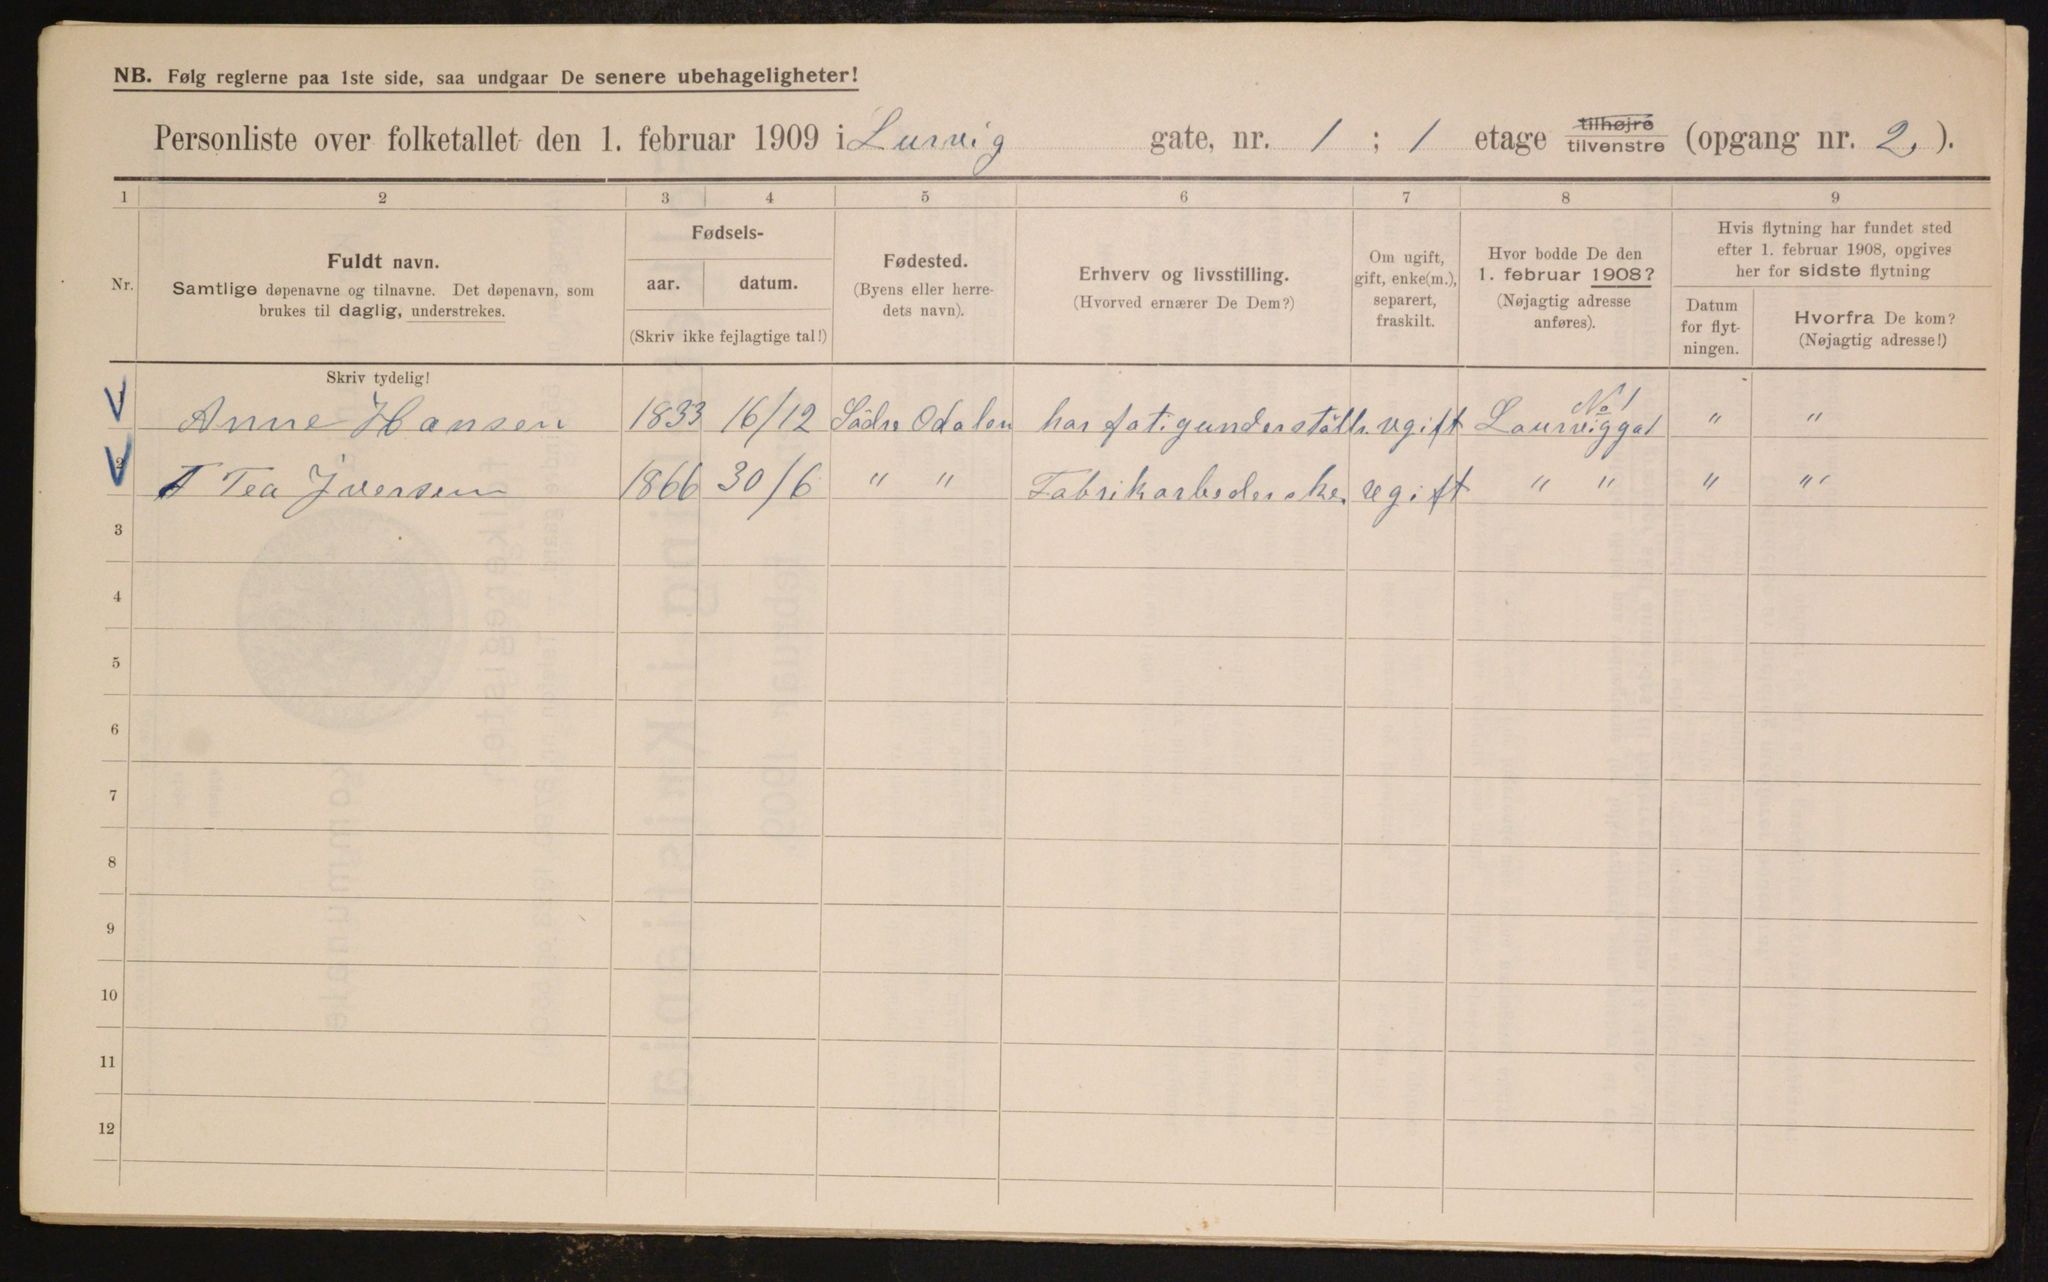 NB. Følg reglerne paa 1ste side, saa undgaar De senere ubehageligheter!
Personliste over folketallet den 1. februar 1909 i Lurvig gate, nr. 1 ; 1 etage tilhøjre tilvenstre (opgang nr. 2.).
1 2 3 4 5 6 7 8 9
Nr.
Fuldt navn.
Samtlige døpenavne og tilnavne. Det døpenavn, som
brukes til daglig, understrekes.
Fødsels-
aar. datum.
(Skriv ikke fejlagtige tal!)
Fødested.
(Byens eller herre-
dets navn).
Erhverv og livsstilling.
(Hvorved ernærer De Dem?)
Om ugift,
gift, enke(m.),
separert,
fraskilt.
Hvor bodde De den
1. februar 1908?
(Nøjagtig adresse
anføres).
Hvis flytning har fundet sted
efter 1. februar 1908, opgives
her for sidste flytning
Datum
for flyt-
ningen.
Hvorfra De kom?
(Nøjagtig adresse!)
Skriv tydelig!
1 Anne Hansen 1833 16/12 Södre Odalen har fatigunderstöttr. ugift Laurviggat No 1 " "
2 Tea Iversen 1866 30/6 " " Fabrikarbederske. ugift " " " "
3
4
5
6
7
8
9
10
11
12